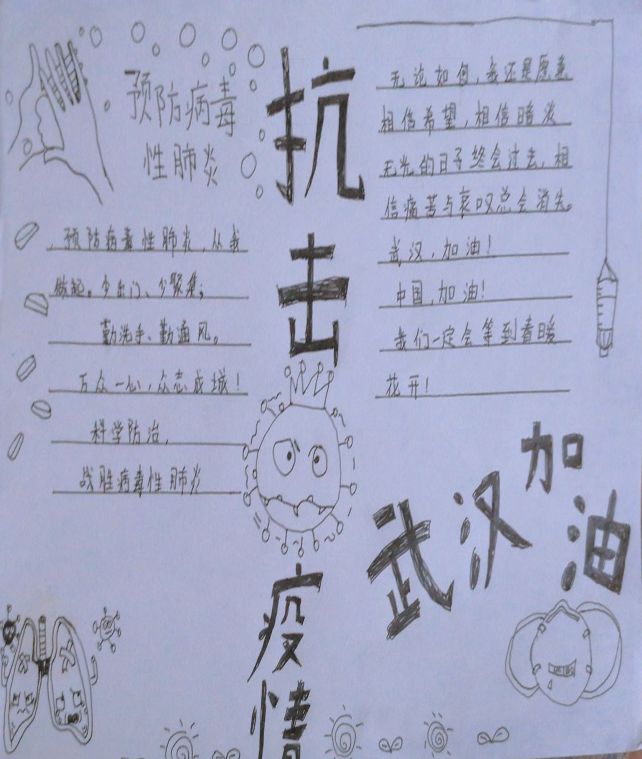 预防病毒
性肺炎
预防病毒性肺炎，从我
做起。少出门、少聚集；
勤洗手、勤通风。
万众一心，众志成城！
科学防治，
战胜病毒性肺炎
抗击疫情
无论如何，我还是愿意
相信希望，相信暗淡
无光的日子终会过去，相
信痛苦与哀叹总会消失。
武汉，加油！
中国，加油！
我们一定会等到春暖
花开！
武汉加油